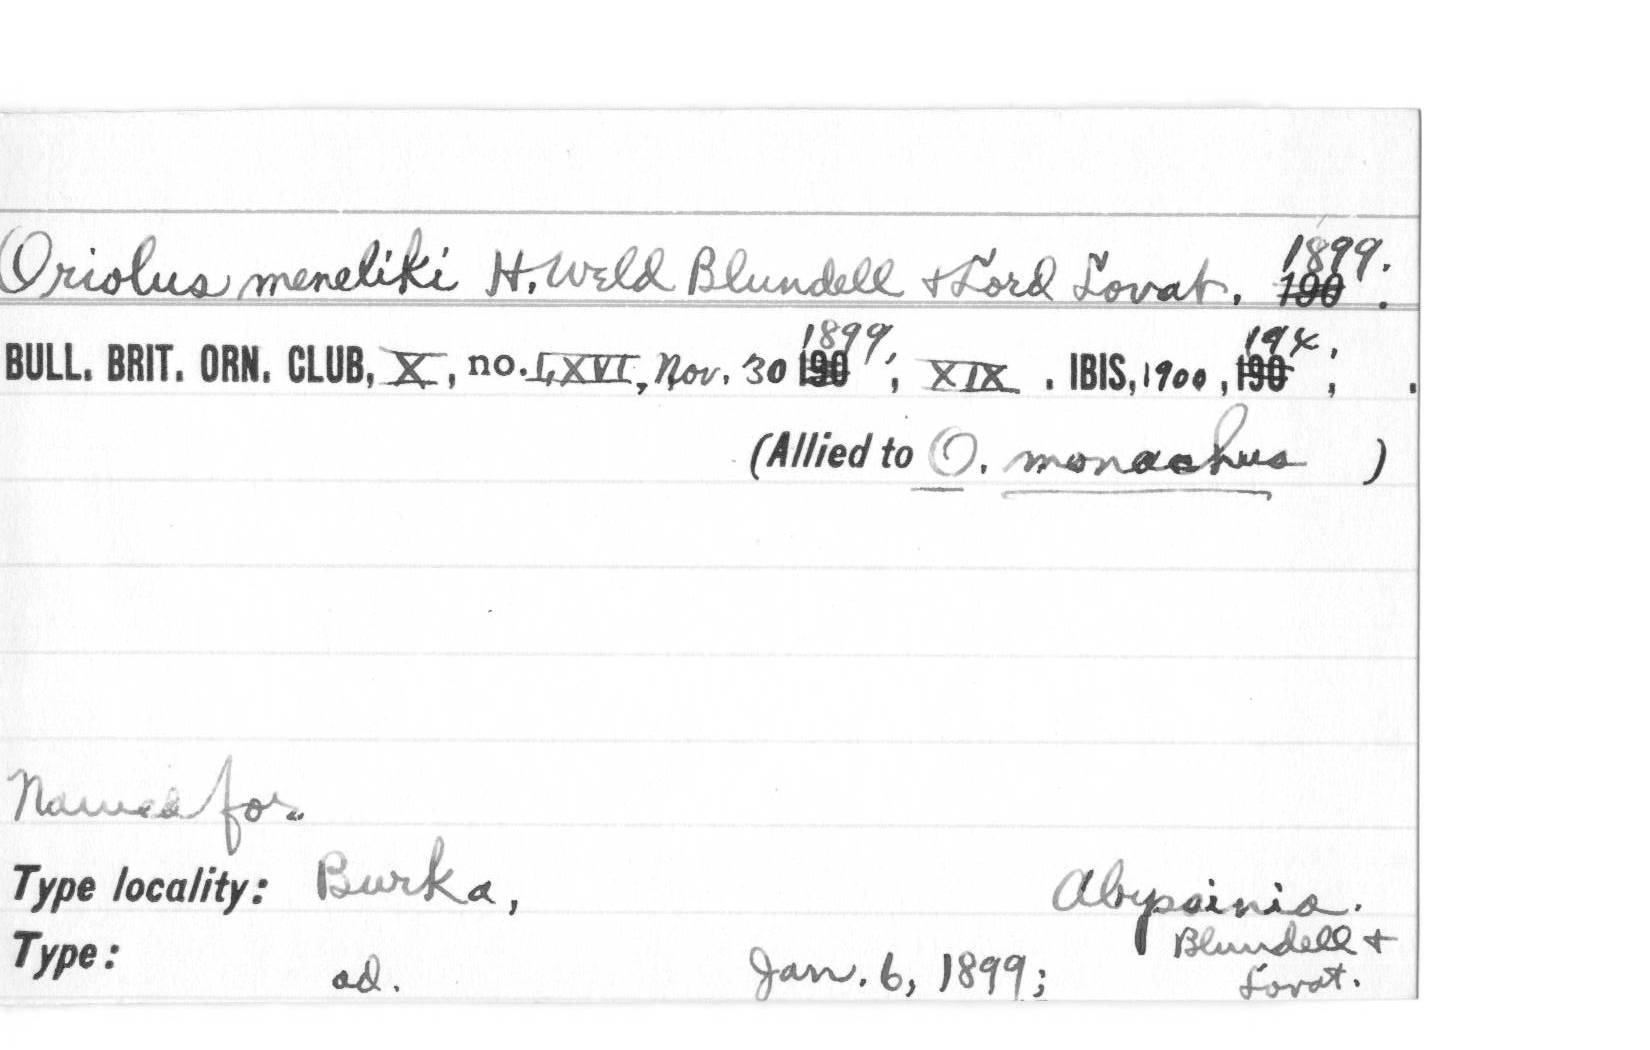 Oriolus meneliki H. Weld Blundell & Lord Lovat. 1899.
190 .
BULL. BRIT. ORN. CLUB, X, no. LXVI, Nov. 30 190 1899, ; XIX . IBIS, 1900, 190 194, ; .
(Allied to O. monachus )
Named for
Type locality: Burka, Abyssinia.
Type: ad. Jan. 6, 1899; Blundell &
Lovat.